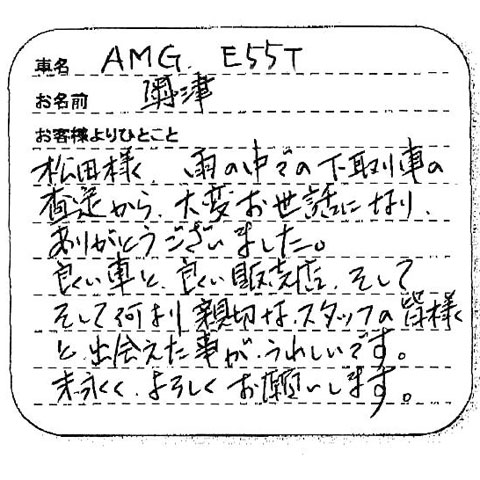 車名 AMG. E55T
お名前 奥津
お客様よりひとこと
松田様、雨の中での下取り車の
査定から、大変お世話になり、
ありがとうございました。
良い車と、良い販売店、そして
そして何より親切な、スタッフの皆様
と、出会えた事が、うれしいです。
末永く、よろしくお願いします。